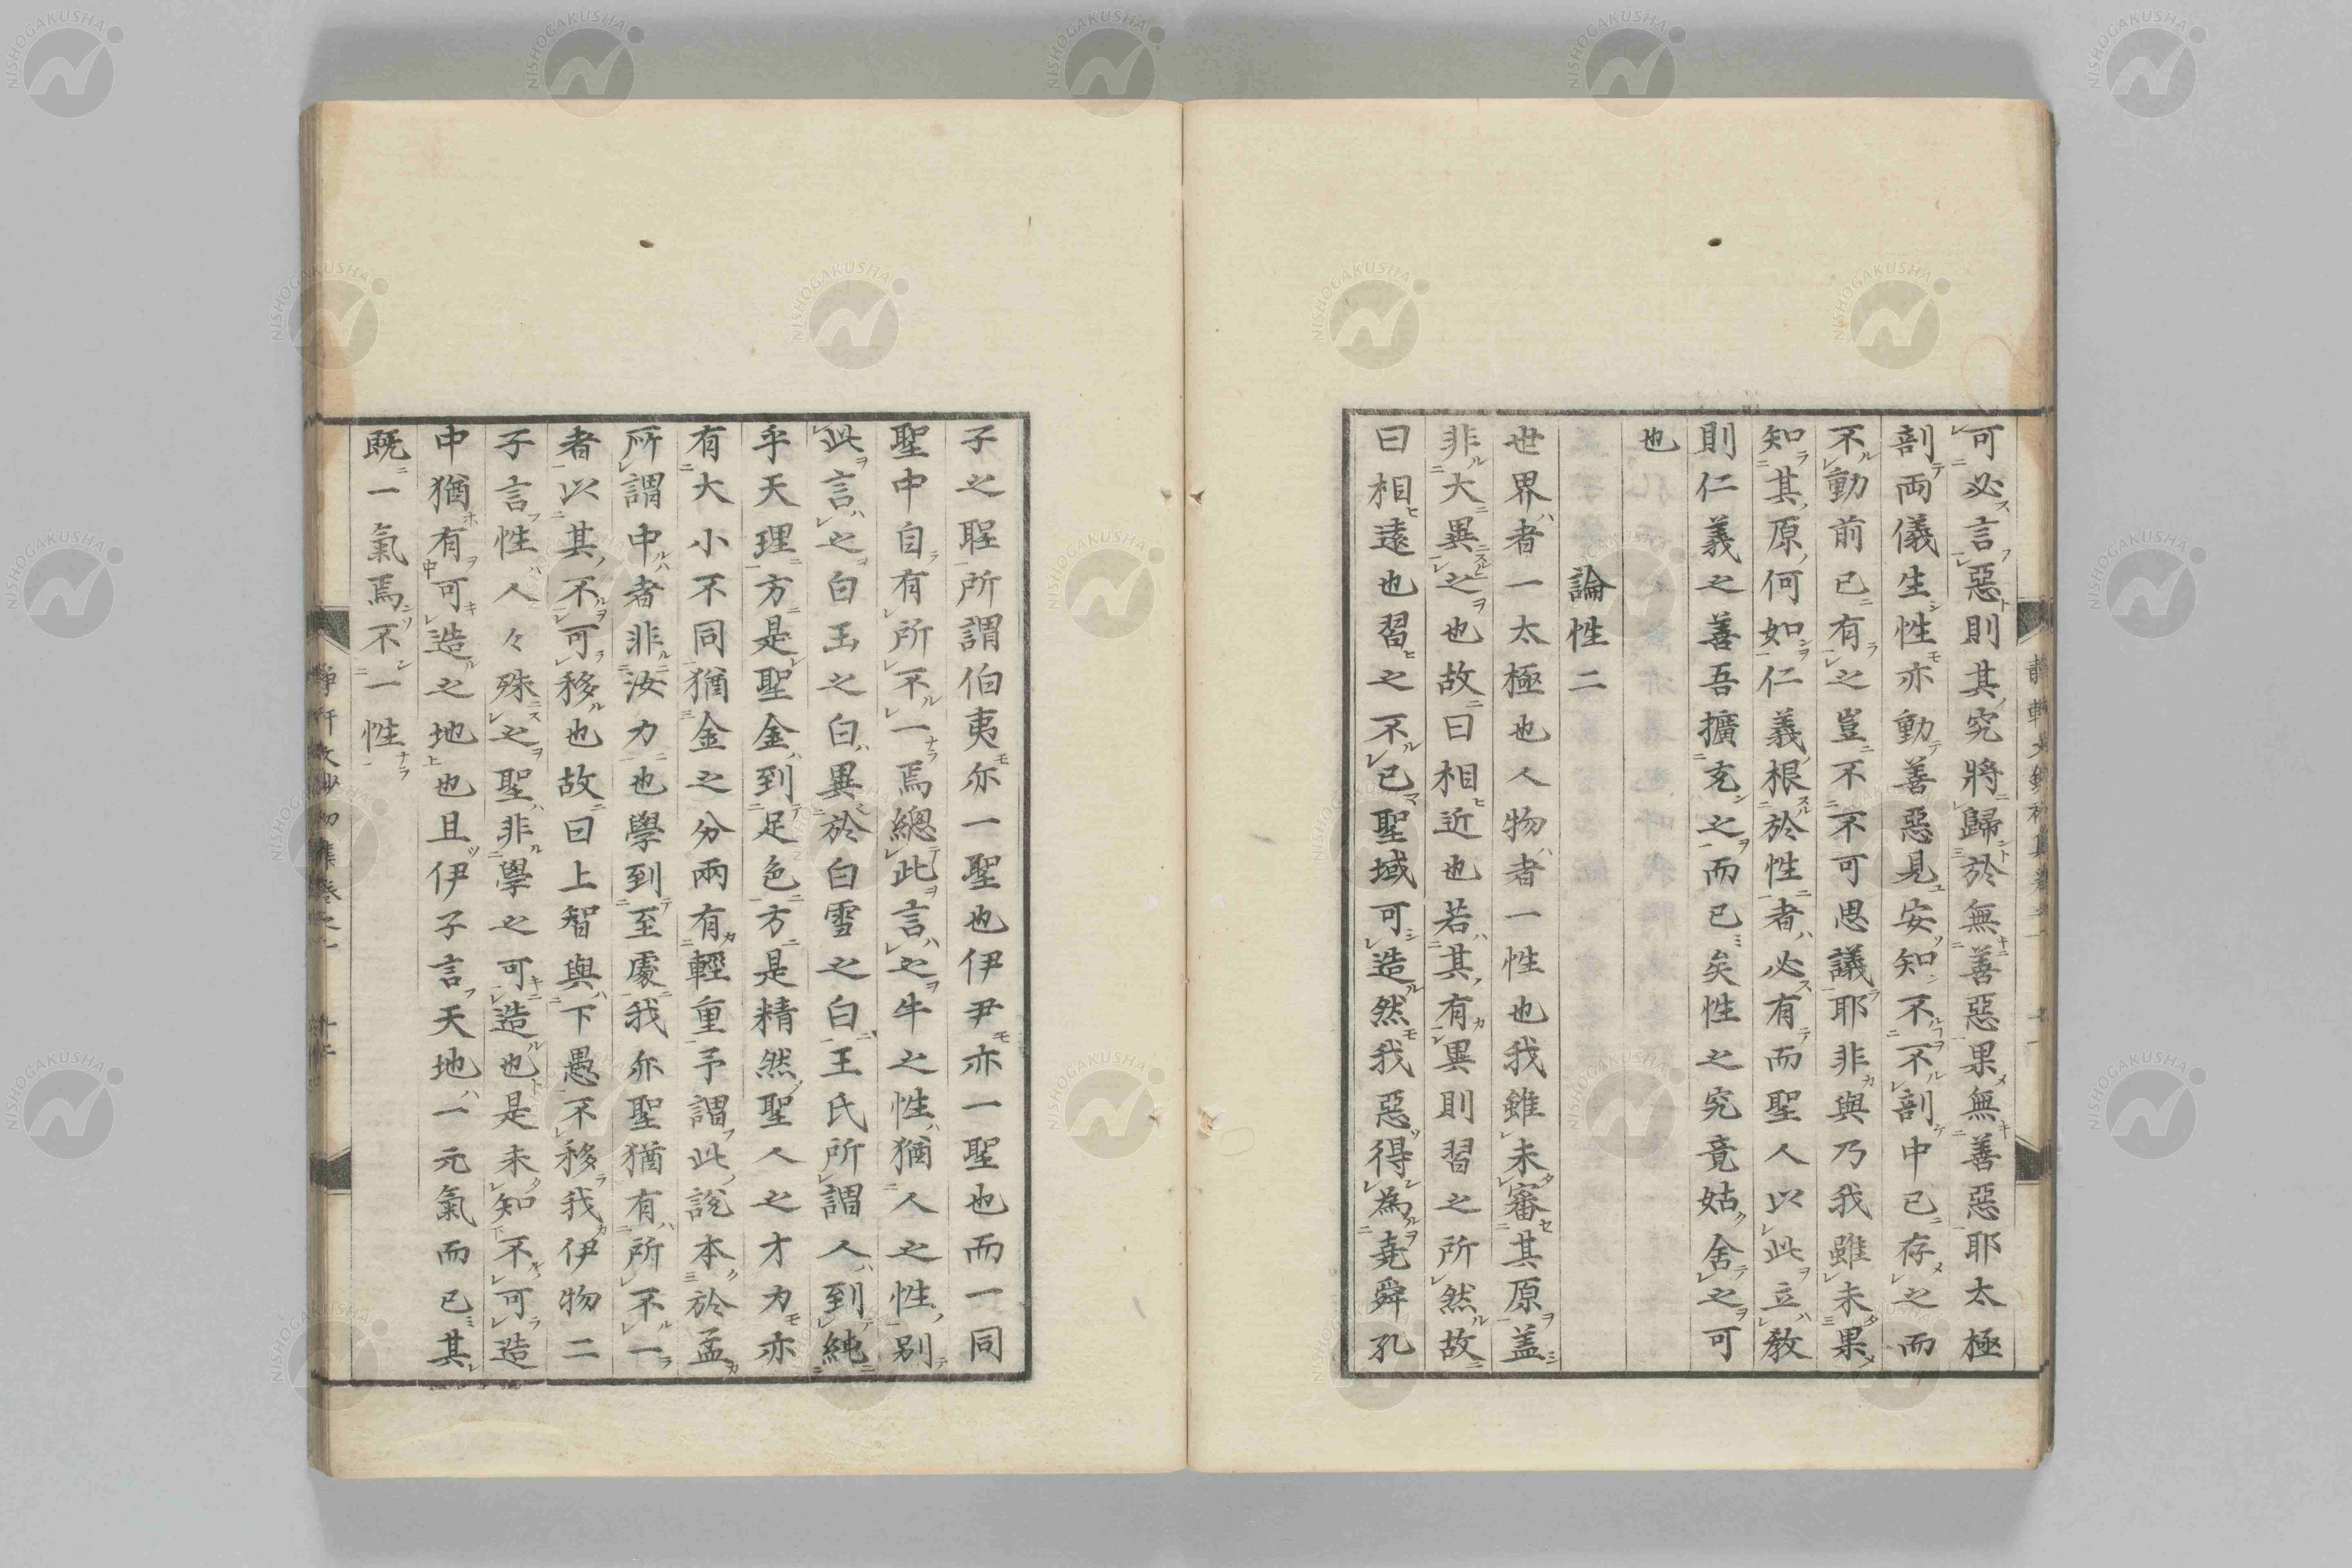 可必言惡則其究將歸於無善惡果無善惡耶太極
剖両儀生性亦動善惡見安知不不剖中已存之而
不動前已有之豈不不可思議耶非與乃我雖未果
知其原何如仁義根於性者必有而聖人以此立教
則仁義之善吾擴充之而已矣性之究竟姑舍之可
也
論性二
世界者一太極也人物者一性也我雖未審其原盖
非大異之也故曰相近也若其有異則習之所然故
曰相遠也習之不已聖域可造然我惡得為堯舜孔
子之聖所謂伯夷亦一聖也伊尹亦一聖也而一同
聖中自有所不一焉總此言之牛之性猶人之性別
此言之白玉之白異於白雪之白王氏所謂人到純
乎天理方是聖金到足色方是精然聖人之才力亦
有大小不同猶金之分兩有輕重予謂此説本於孟
所謂中者非汝力也學到至處我亦聖猶有所不一
者以其不可移也故曰上智與下愚不移我伊物二
子言性人々殊之聖非學之可造也是未知不可造
中猶有可造之地也且伊子言天地一元氣而已其
既一氣焉不一性